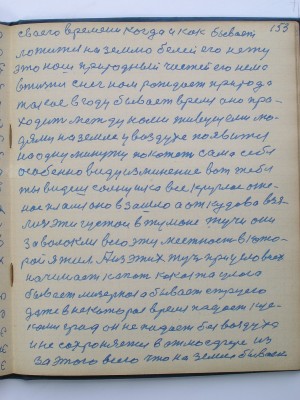 153
своего времени когда и как бывает
ложится на землю белей его нету
это наш природный чистей его нема
в жизни снег нам рождает природа
такое в году бывает время оно про-
ходит между нами живущими лю-
дями на земле и в воздухе появится
на одну минуту покажет само себя
особенно виду изминение вот тебе
ты видиш солнушко все круглое огне-
ное пламя оно взошло а откудова взя-
лися эти густои в тумоне тучи они
заволокли всю эту местность в кото-
рой я жил. А из этих туч при условиях
начинает капать какая то влага
бывает мизерная бывает струею
даже в некоторая время падает ку-
ками град он не падает без воздуха
и не сохроняется в атмосфере из
За этого всего что на земле бывает